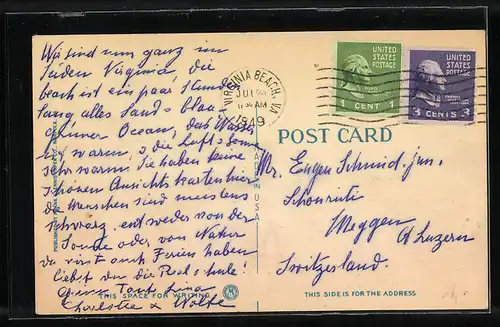 Wir sind nun ganz im
Süden Virginia, die
beach ist ein paar Stunden
lang alles Sand & blau-
grüner Ocean, das Wasser
ist warm, & die Luft & Sonne
sehr warm. Sie haben keine
schönen Ansichtskarten hier
die Menschen sind meistens
schwarz, entweder von der
Sonne oder von Natur
da wirst auch Ferien haben
liebst du die Rechschule!
Deine Tante Lina
Charlotte & Wolfe
THIS SPACE FOR WRITING
MADE IN U.S.A.
VIRGINIA BEACH, VA.
JUL
AM
1949
UNITED
STATES
POSTAGE
1 CENT 1
UNITED
STATES
POSTAGE
3 CENTS 3
POST CARD
Mr. Eugen Schmid. jun.
Meggen
b/Luzern
Switzerland.
THIS SIDE IS FOR THE ADDRESS